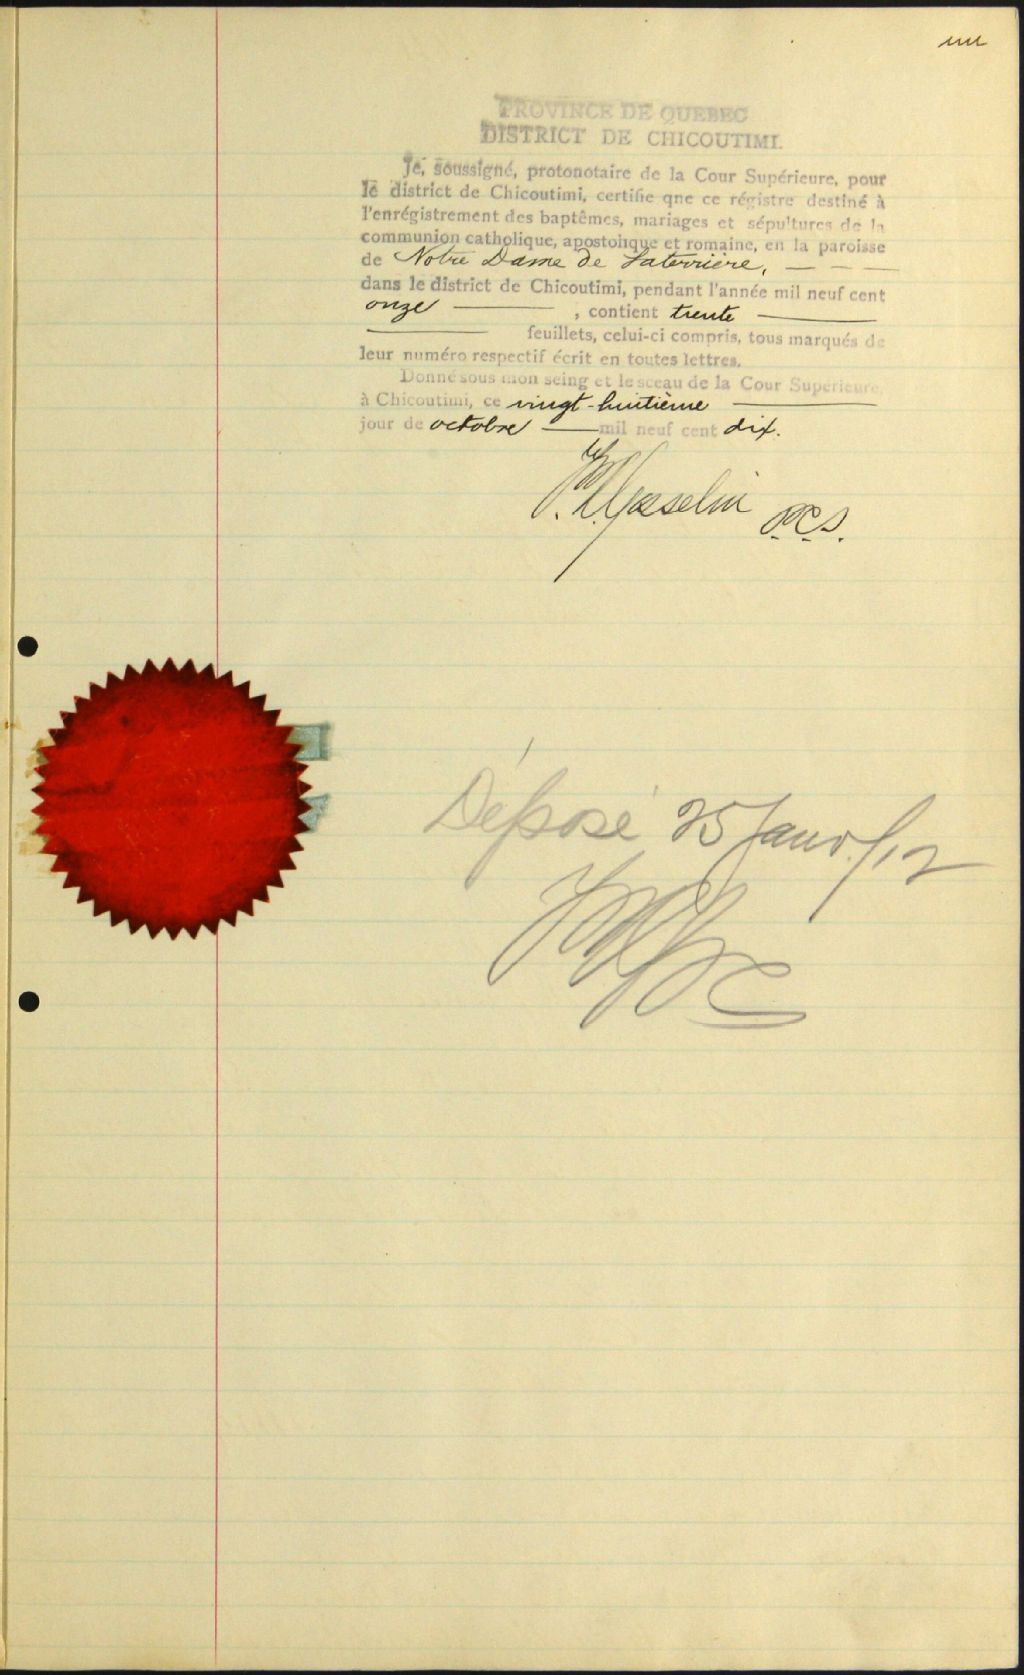 un
PROVINCE DE QUEBEC
DISTRICT DE CHICOUTIMI.
Je, soussigné, protonotaire de la Cour Supérieure, pour
le district de Chicoutimi, certifie qne ce régistre destiné à
l'enrégistrement des baptêmes, mariages et sépultures de la
communion catholique, apostolique et romaine, en la paroisse
de Notre Dame de Laterrière,
dans le district de Chicoutimi, pendant l'année mil neuf cent
onze , contient trente
feuillets, celui-ci compris, tous marqués de
leur numéro respectif écrit en toutes lettres.
Donné sous mon seing et le sceau de la Cour Supérieure,
à Chicoutimi, ce vingt-huitième
jour de octobre mil neuf cent dix.
Gosselin P.C.S.
Déposé 25 Janv./12